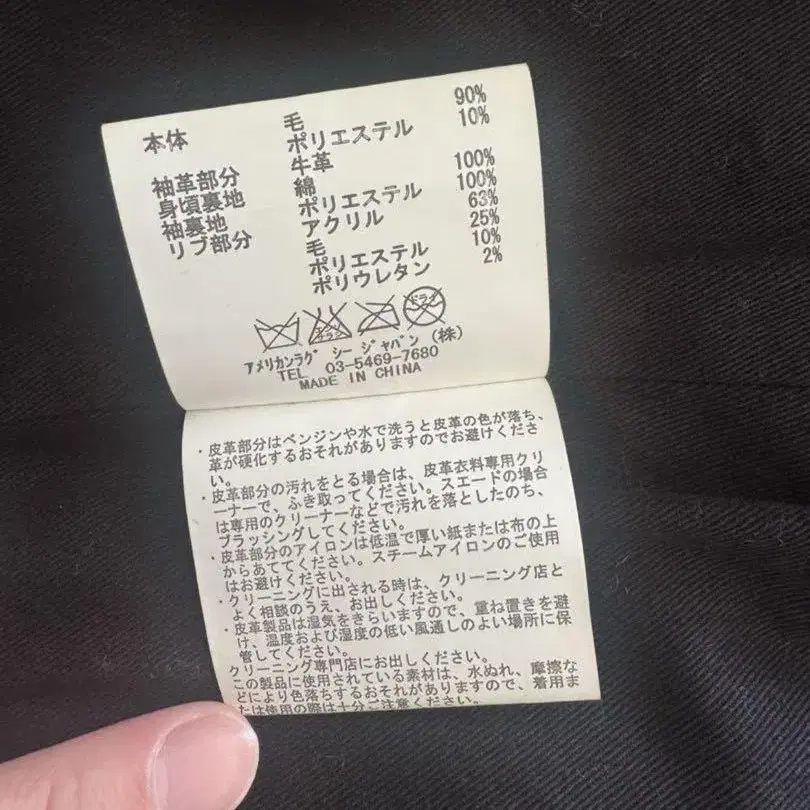 本体 毛 90%
ポリエステル 10%
袖革部分 牛革 100%
身頃裏地 綿 100%
袖裏地 ポリエステル 63%
リブ部分 アクリル 25%
毛 10%
ポリエステル 2%
ポリウレタン
ドライ
アメリカンラグ シー ジャパン (株)
TEL 03-5469-7680
MADE IN CHINA
・皮革部分はベンジンや水で洗うと皮革の色が落ち、
革が硬化するおそれがありますのでお避けくださ
い。
・皮革部分の汚れをとる場合は、皮革衣料専用クリ
ーナーで、ふき取ってください。スエードの場合
は専用のクリーナーなどで汚れを落としたのち、
ブラッシングしてください。
・皮革部分のアイロンは低温で厚い紙または布の上
からあててください。スチームアイロンのご使用
はお避けください。
・クリーニングに出される時は、クリーニング店と
よく相談のうえ、お出しください。
・皮革製品は湿気をきらいますので、重ね置きを避
け、温度および湿度の低い風通しのよい場所に保
管してください。
クリーニング専門店にお出しください。
この製品に使用されている素材は、水ぬれ、摩擦な
どにより色落ちするおそれがありますので、着用ま
たは使用の際は十分ご注意ください。